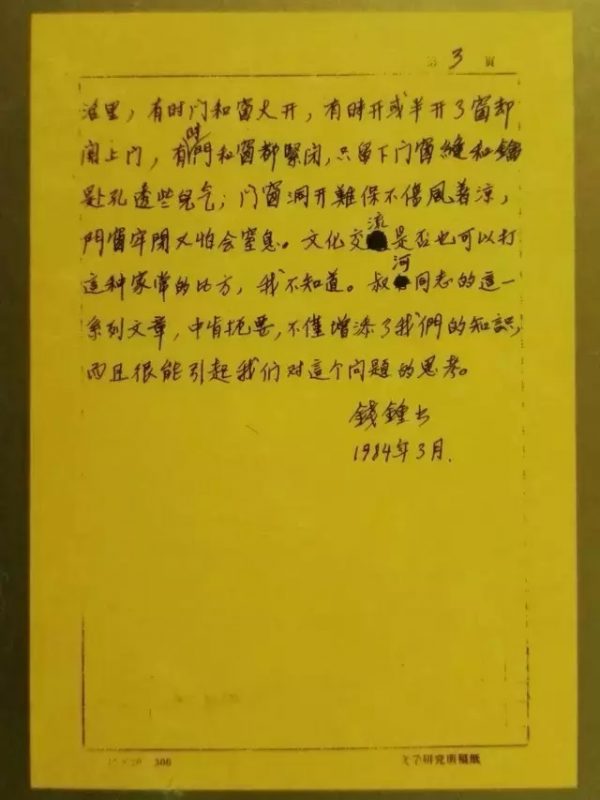 第 3 頁
活里，有时门和窗大开，有時开或半开了窗却
関上门，有時門和窗都緊闭，只留下门窗縫和鑰
匙孔透些兒气；门窗洞开難保不傷風着涼，
門窗牢閉又怕会窒息。文化交流是否也可以打
這种家常的比方，我不知道。叔河同志的這一
系列文章，中肯扼要，不僅增添了我們的知識，
而且很能引起我们对這个问題的思考。
錢鍾书
1984年3月.
15×20 306
文学研究所稿紙